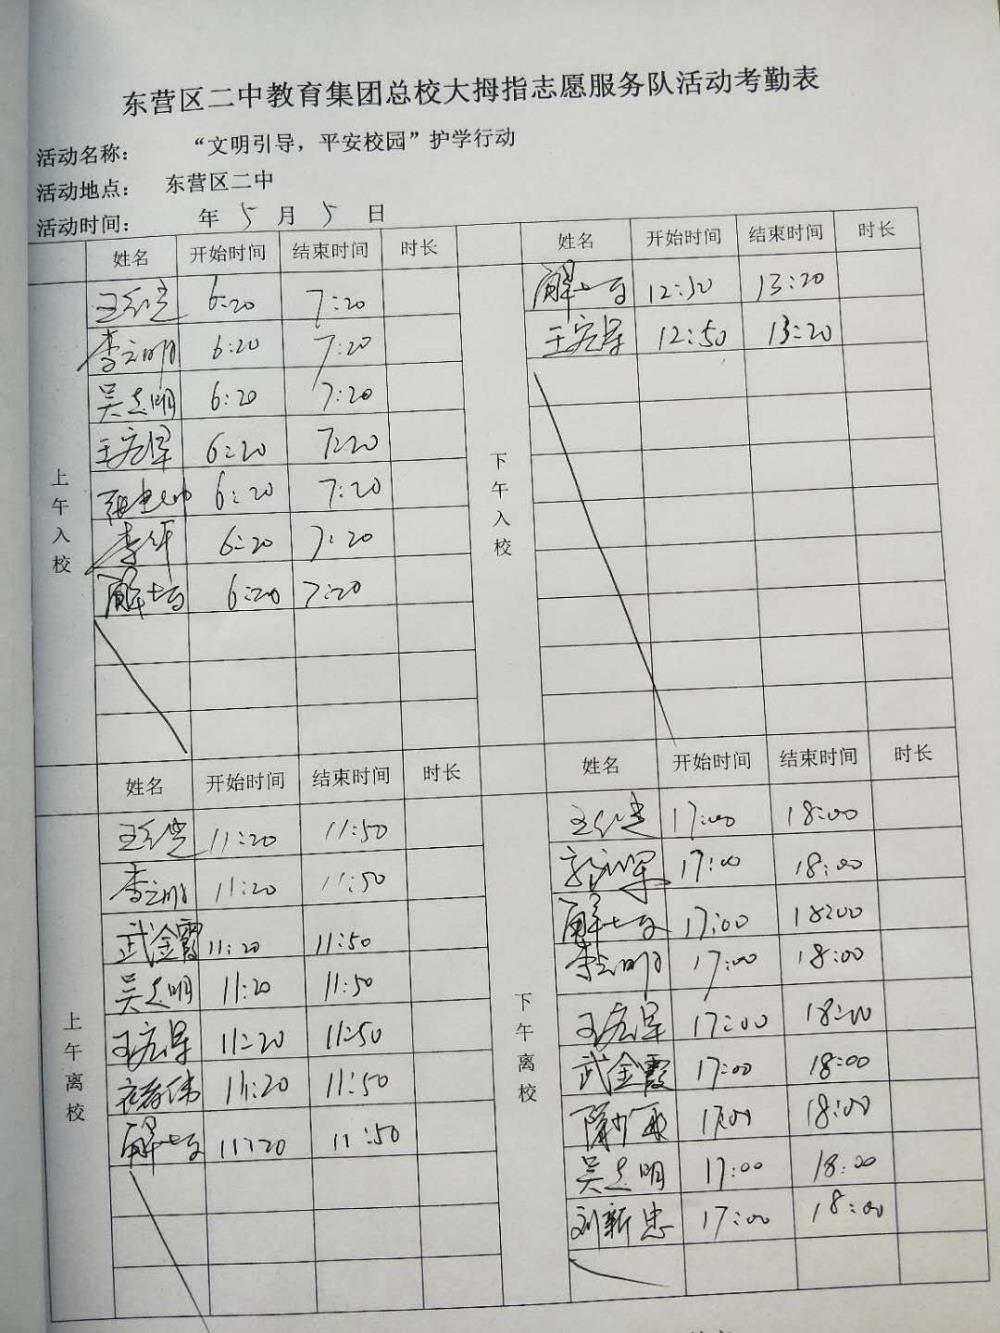 东营区二中教育集团总校大拇指志愿服务队活动考勤表
活动名称: “文明引导，平安校园”护学行动
活动地点: 东营区二中
活动时间: 年 5 月 5 日
姓名 开始时间 结束时间 时长
上午入校
6:20 7:20
李立明 6:20 7:20
吴志明 6:20 7:20
王宏军 6:20 7:20
6:20 7:20
6:20 7:20
6:20 7:20
姓名 开始时间 结束时间 时长
下午入校
13:20
王宏军 12:50 13:20
姓名 开始时间 结束时间 时长
上午离校
11:20 11:50
李立明 11:20 11:50
武金霞 11:20 11:50
吴志明 11:20 11:50
王宏军 11:20 11:50
11:20 11:50
11:20 11:50
姓名 开始时间 结束时间 时长
下午离校
17:00 18:00
17:00 18:00
17:00 18:00
李立明 17:00 18:00
王宏军 17:00 18:00
武金霞 17:00 18:00
17:00 18:00
吴志明 17:00 18:00
刘新忠 17:00 18:00